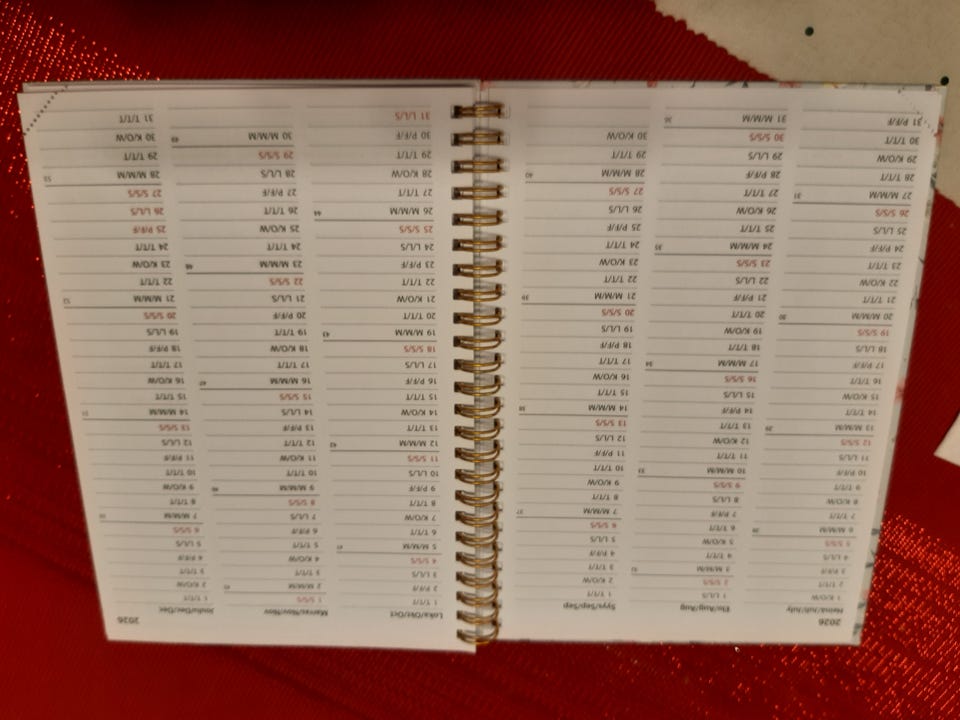 2026
Heinä/Juli/July
1 K/O/W
2 T/T/T
3 P/F/F
4 L/L/S
5 S/S/S
6 M/M/M 28
7 T/T/T
8 K/O/W
9 T/T/T
10 P/F/F
11 L/L/S
12 S/S/S
13 M/M/M 29
14 T/T/T
15 K/O/W
16 T/T/T
17 P/F/F
18 L/L/S
19 S/S/S
20 M/M/M 30
21 T/T/T
22 K/O/W
23 T/T/T
24 P/F/F
25 L/L/S
26 S/S/S
27 M/M/M 31
28 T/T/T
29 K/O/W
30 T/T/T
31 P/F/F
Elo/Aug/Aug
1 L/L/S
2 S/S/S
3 M/M/M 32
4 T/T/T
5 K/O/W
6 T/T/T
7 P/F/F
8 L/L/S
9 S/S/S
10 M/M/M 33
11 T/T/T
12 K/O/W
13 T/T/T
14 P/F/F
15 L/L/S
16 S/S/S
17 M/M/M 34
18 T/T/T
19 K/O/W
20 T/T/T
21 P/F/F
22 L/L/S
23 S/S/S
24 M/M/M 35
25 T/T/T
26 K/O/W
27 T/T/T
28 P/F/F
29 L/L/S
30 S/S/S
31 M/M/M 36
Syys/Sep/Sep
1 T/T/T
2 K/O/W
3 T/T/T
4 P/F/F
5 L/L/S
6 S/S/S
7 M/M/M 37
8 T/T/T
9 K/O/W
10 T/T/T
11 P/F/F
12 L/L/S
13 S/S/S
14 M/M/M 38
15 T/T/T
16 K/O/W
17 T/T/T
18 P/F/F
19 L/L/S
20 S/S/S
21 M/M/M 39
22 T/T/T
23 K/O/W
24 T/T/T
25 P/F/F
26 L/L/S
27 S/S/S
28 M/M/M 40
29 T/T/T
30 K/O/W
Loka/Okt/Oct
1 T/T/T
2 P/F/F
3 L/L/S
4 S/S/S
5 M/M/M 41
6 T/T/T
7 K/O/W
8 T/T/T
9 P/F/F
10 L/L/S
11 S/S/S
12 M/M/M 42
13 T/T/T
14 K/O/W
15 T/T/T
16 P/F/F
17 L/L/S
18 S/S/S
19 M/M/M 43
20 T/T/T
21 K/O/W
22 T/T/T
23 P/F/F
24 L/L/S
25 S/S/S
26 M/M/M 44
27 T/T/T
28 K/O/W
29 T/T/T
30 P/F/F
31 L/L/S
Marras/Nov/Nov
1 S/S/S
2 M/M/M 45
3 T/T/T
4 K/O/W
5 T/T/T
6 P/F/F
7 L/L/S
8 S/S/S
9 M/M/M 46
10 T/T/T
11 K/O/W
12 T/T/T
13 P/F/F
14 L/L/S
15 S/S/S
16 M/M/M 47
17 T/T/T
18 K/O/W
19 T/T/T
20 P/F/F
21 L/L/S
22 S/S/S
23 M/M/M 48
24 T/T/T
25 K/O/W
26 T/T/T
27 P/F/F
28 L/L/S
29 S/S/S
30 M/M/M 49
2026
Joulu/Dec/Dec
1 T/T/T
2 K/O/W
3 T/T/T
4 P/F/F
5 L/L/S
6 S/S/S
7 M/M/M 50
8 T/T/T
9 K/O/W
10 T/T/T
11 P/F/F
12 L/L/S
13 S/S/S
14 M/M/M 51
15 T/T/T
16 K/O/W
17 T/T/T
18 P/F/F
19 L/L/S
20 S/S/S
21 M/M/M 52
22 T/T/T
23 K/O/W
24 T/T/T
25 P/F/F
26 L/L/S
27 S/S/S
28 M/M/M 53
29 T/T/T
30 K/O/W
31 T/T/T